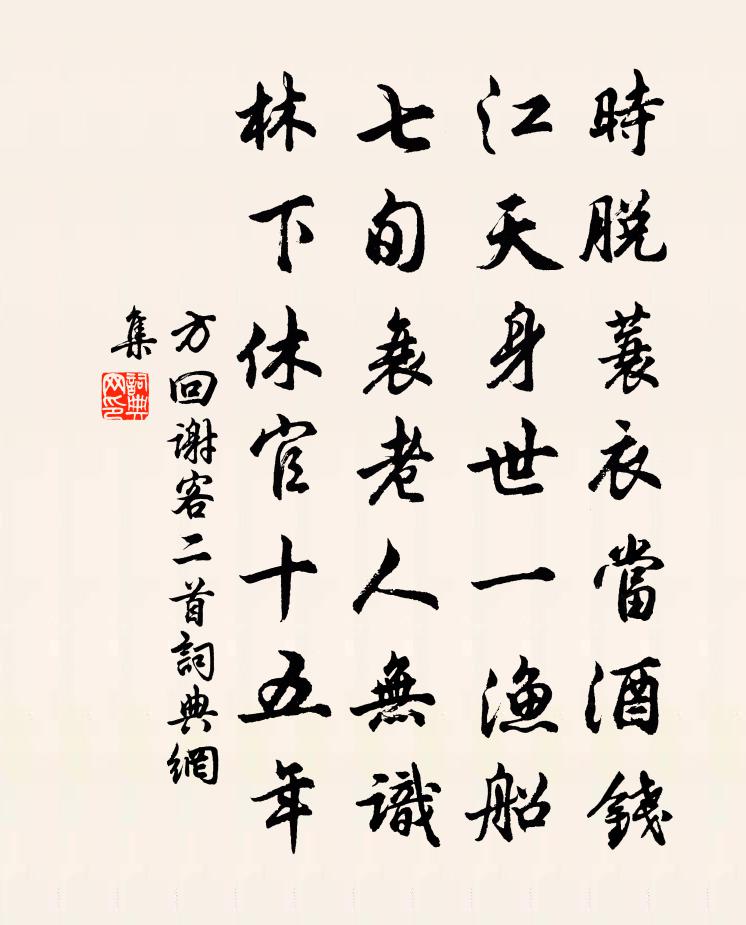 時脱蓑衣當酒錢
江天身世一漁船
七旬衰老人無識
林下休官十五年
方回謝客二首詞典網
集
詞典
网印